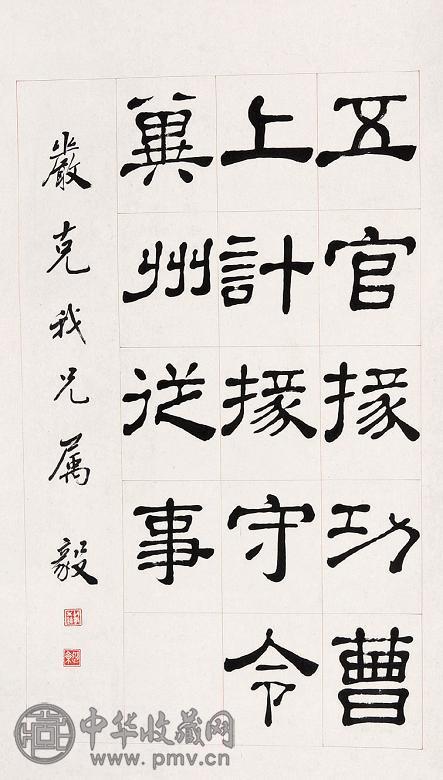 五官掾功曹
上計掾守令
冀州從事
嚴克我兄属毅
中华收藏网
www.pmv.cn